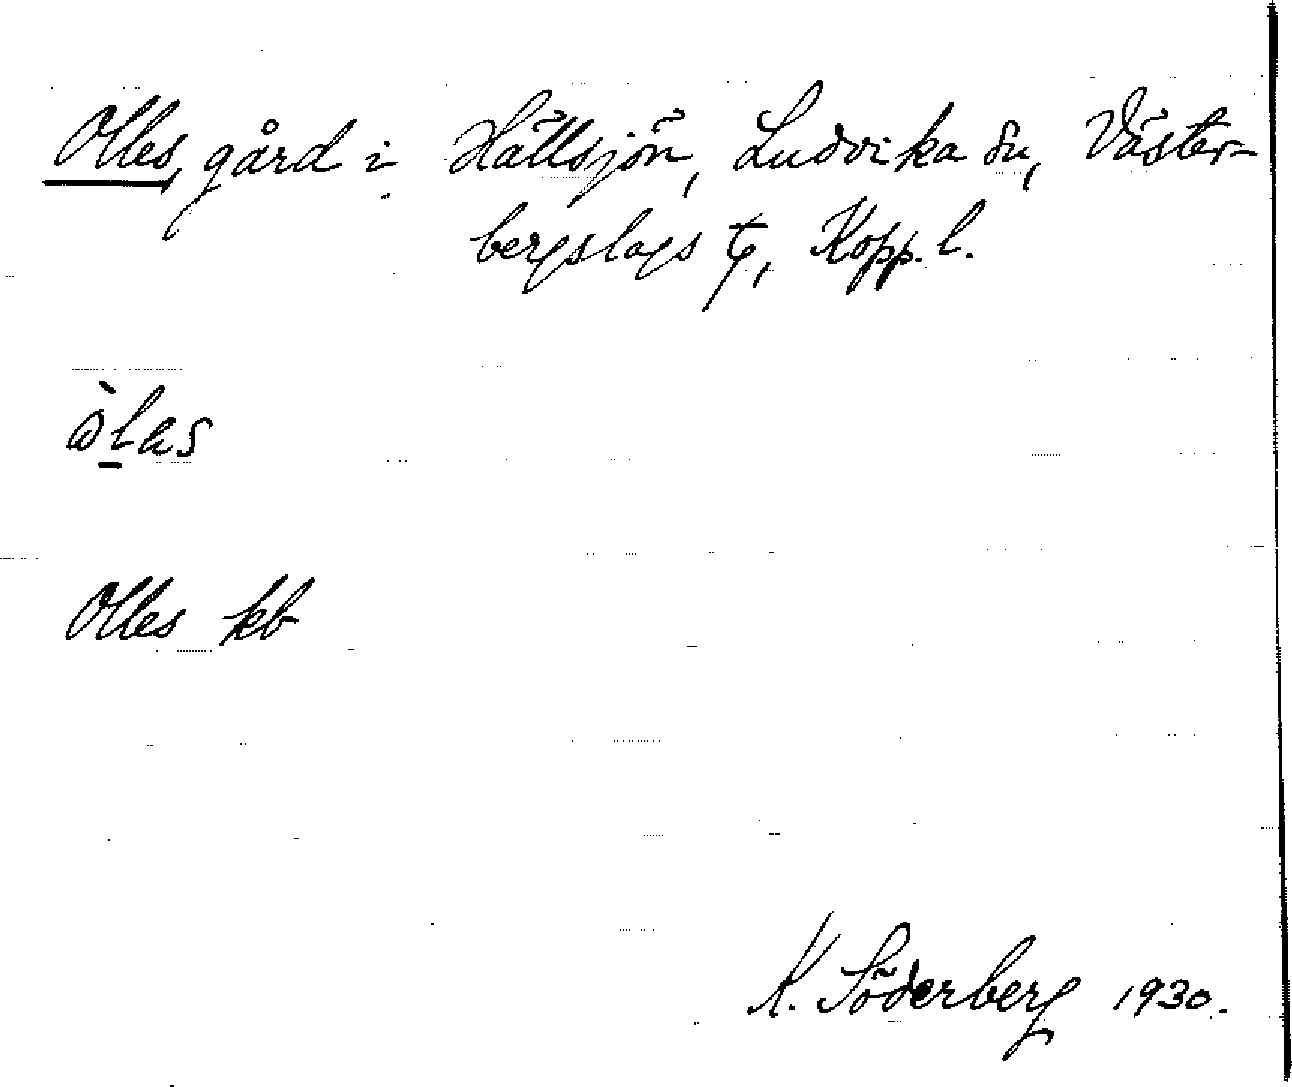 Olles, gård i Hällsjön, Ludvika sn, Väster-
bergslags tg, Kopp. l.
Olles kb
K. Söderberg 1930.